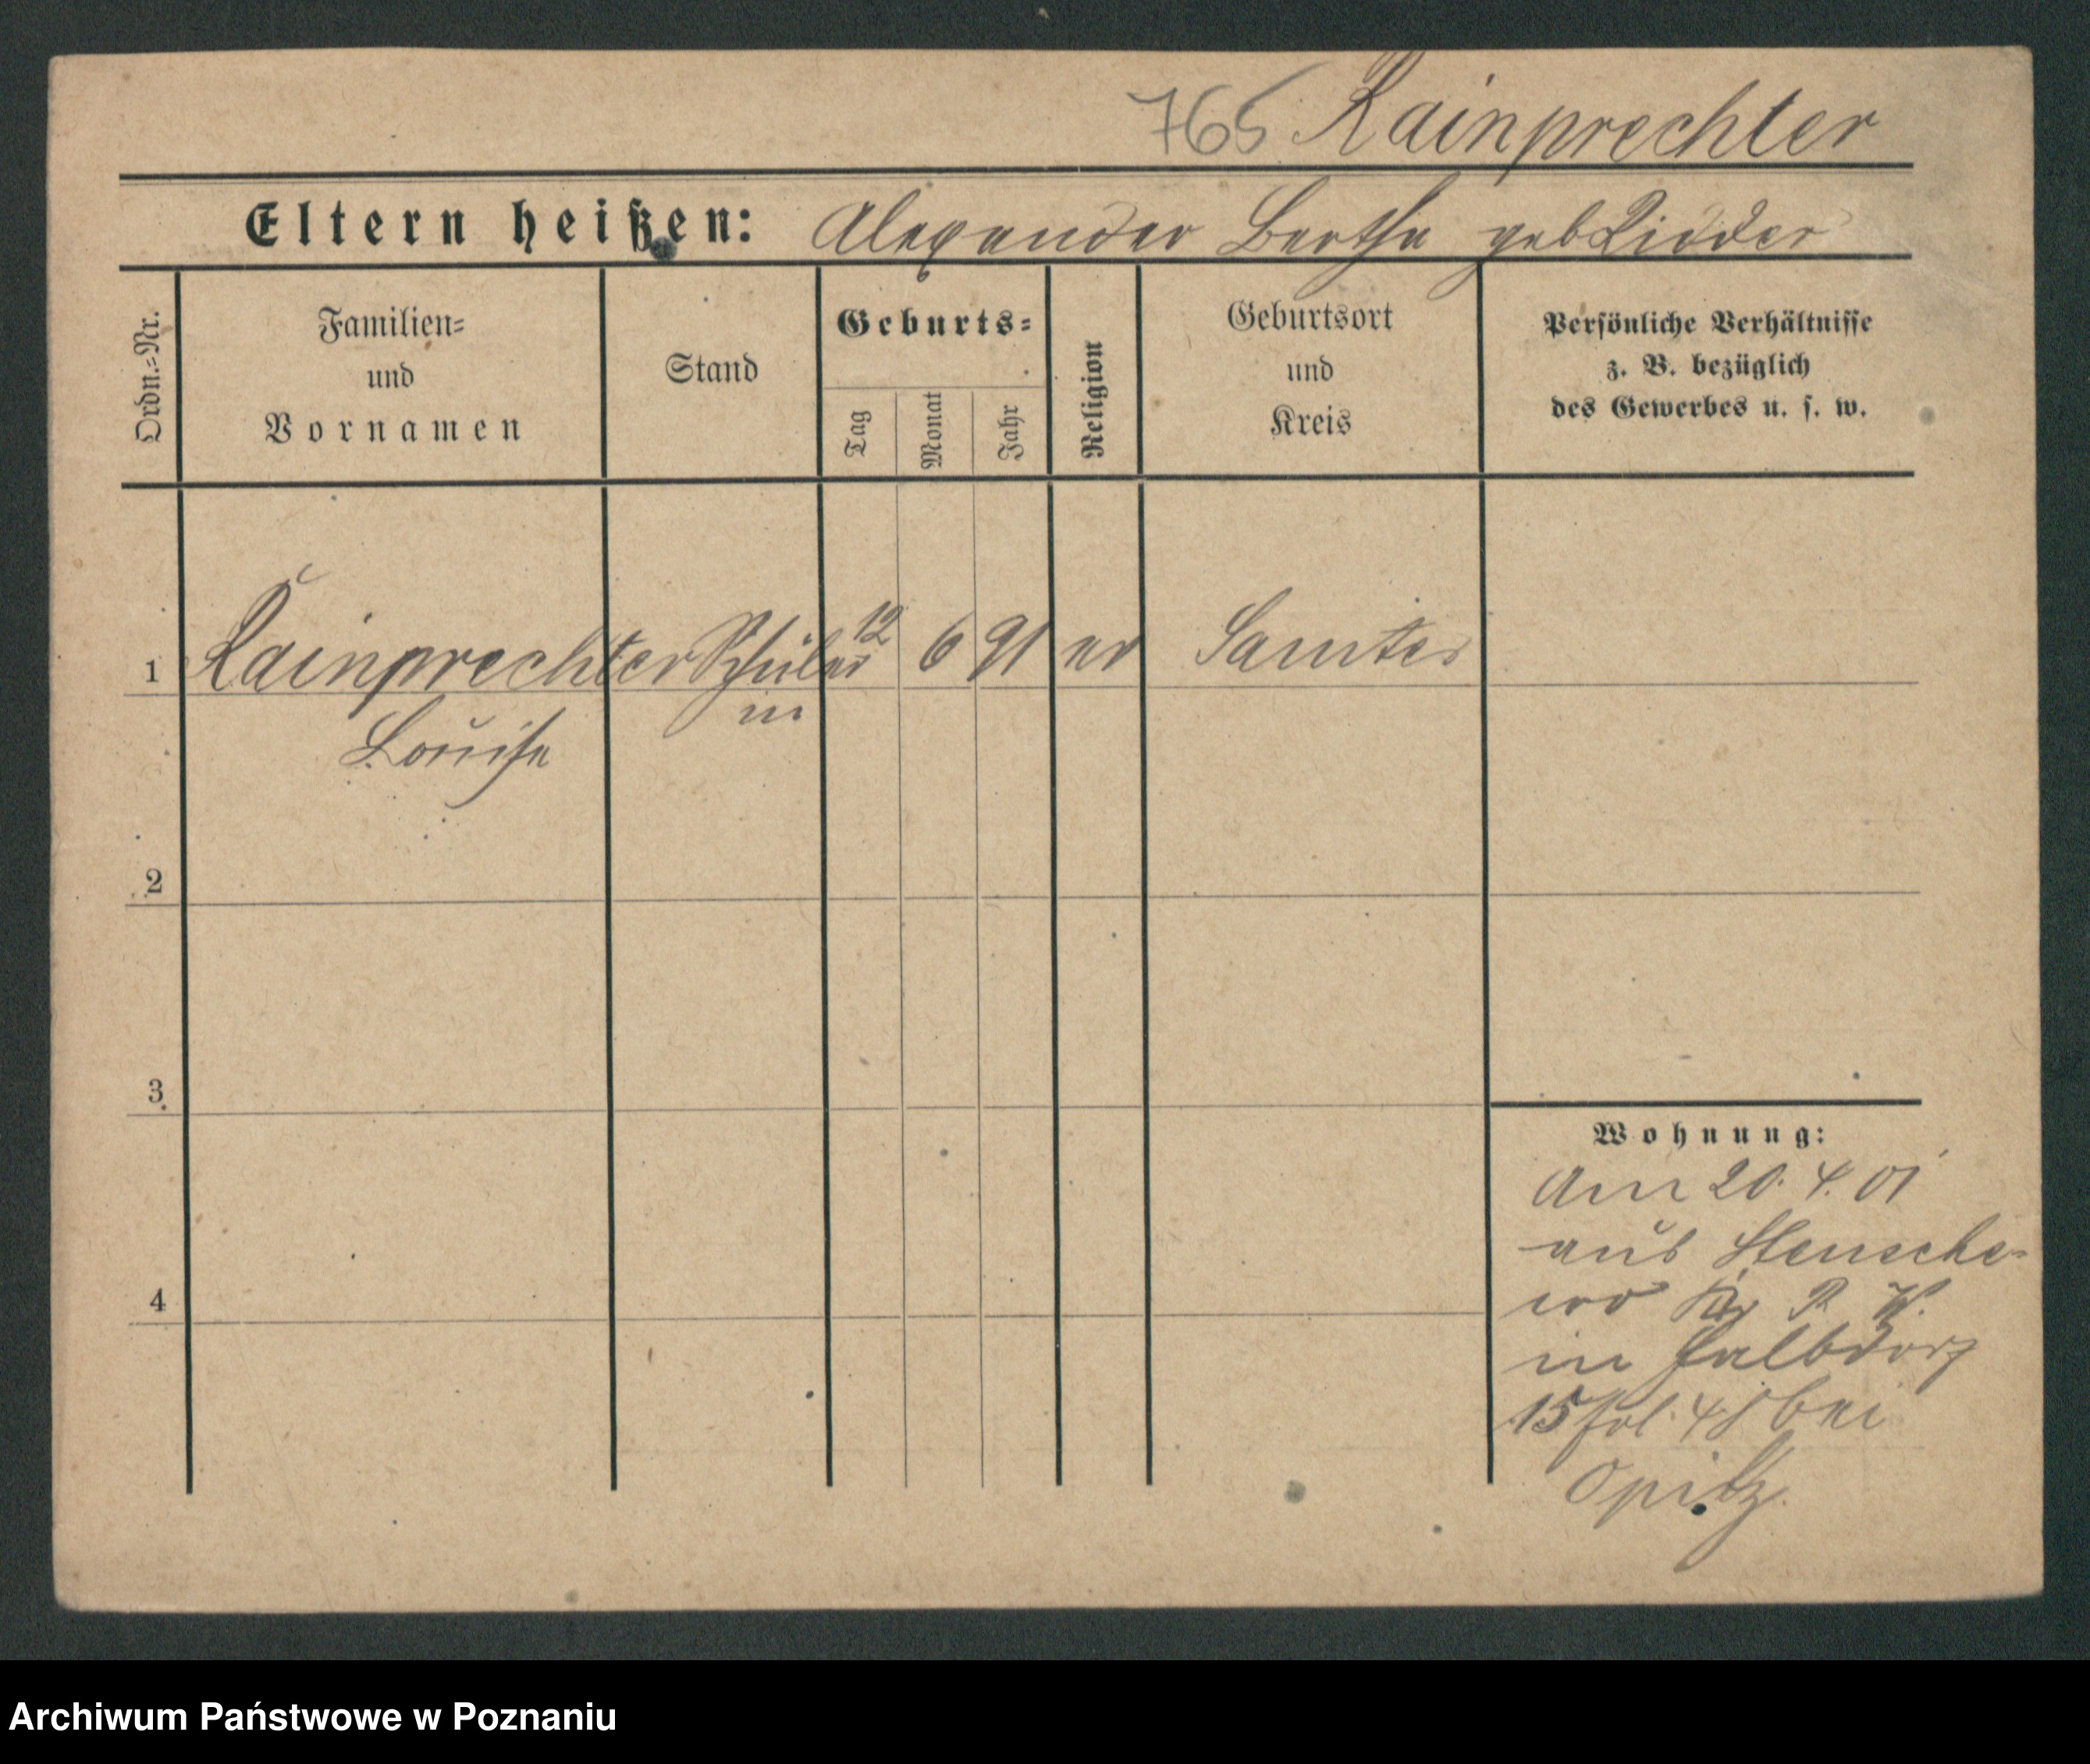 765 Rainprechter
Eltern heißen: Alexander Bertha geb Ridder
Ordn.=Nr.
Familien=
und
Vornamen
Stand
Geburts=
Tag
Monat
Jahr
Religion
Geburtsort
und
Kreis
Persönliche Verhältnisse
z. B. bezüglich
des Gewerbes u. s. w.
1 Rainprechter Schüler 12 6 91 ev Samter
in
Louise
2
3
4
Wohnung:
Am 20. 4. 01
aus Stensche-
wo Kr P. W.
in Halbdorf
15 bei
Opitz.
Archiwum Państwowe w Poznaniu